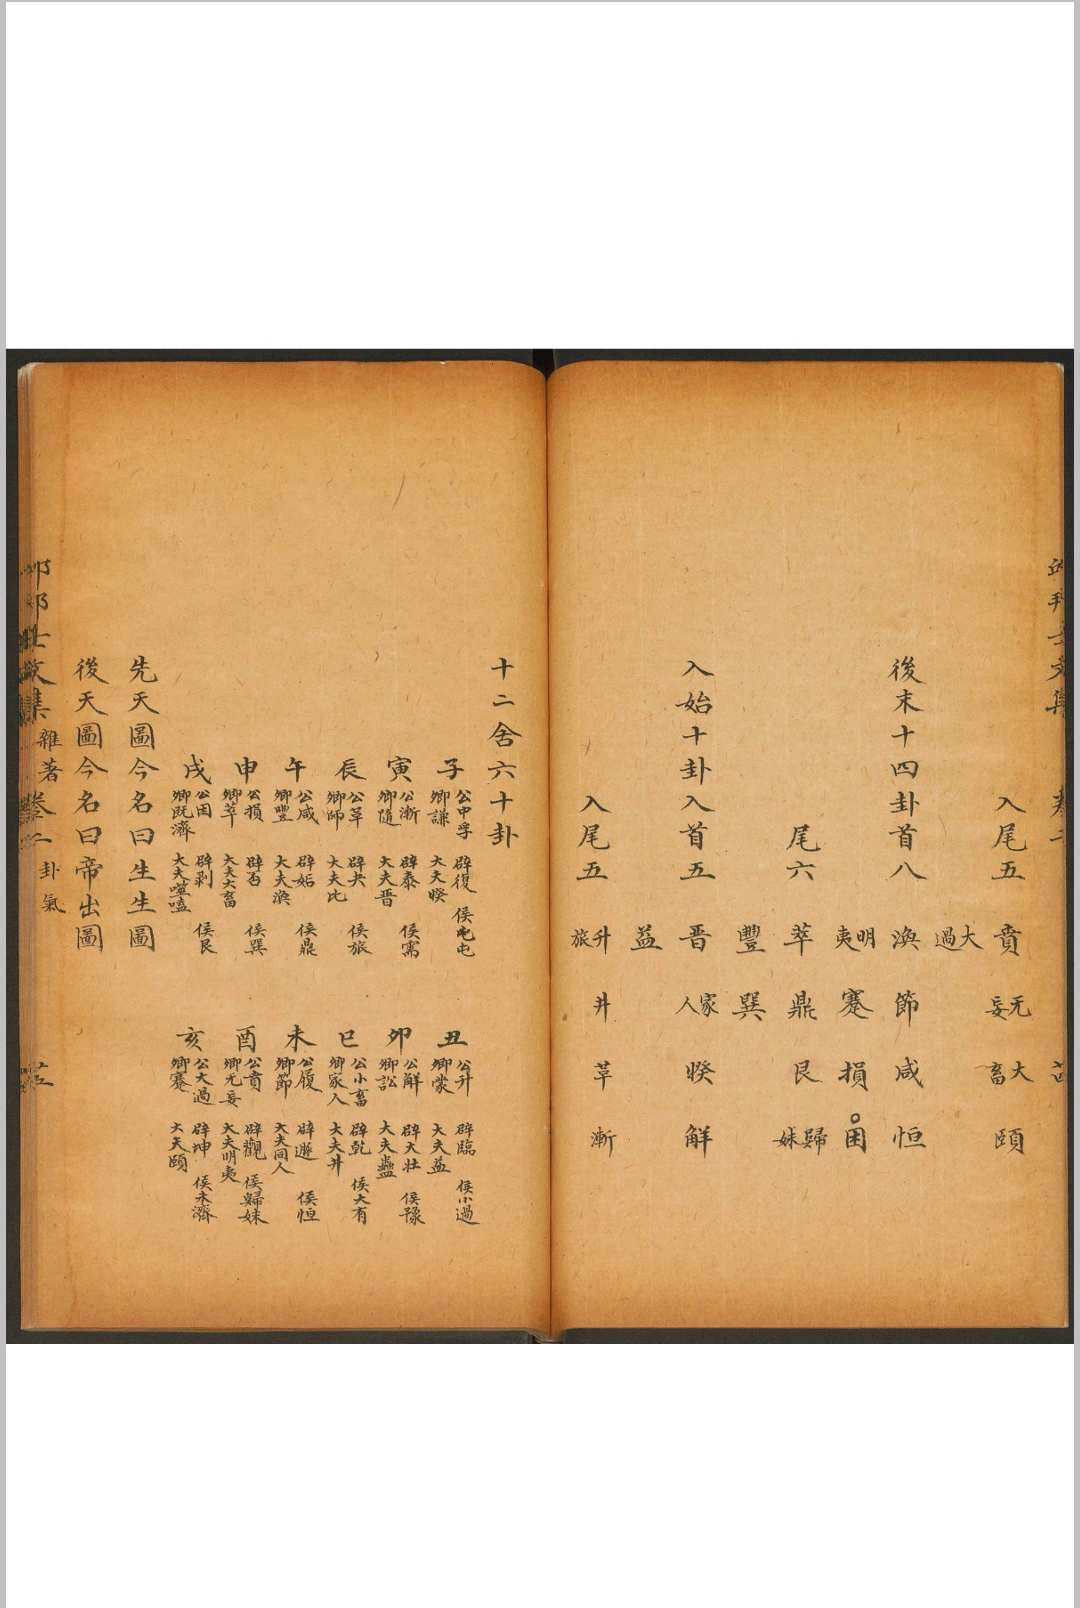 入尾五　賁　无妄　大畜　頤
大過
後末十四卦首八　渙　節　咸　恒
明夷　蹇　損　困
尾六　萃　鼎　艮　歸妹
豐　巽
入始十卦入首五　晉　家人　睽　解
益
入尾五　升旅　井　革　漸
十二舍六十卦
子　公中孚　辟復　侯屯屯
卿謙　大夫睽
丑　公升　辟臨　侯小過
卿蒙　大夫益
寅　公漸　辟泰　侯需
卿隨　大夫晉
卯　公解　辟大壯　侯豫
卿訟　大夫蠱
辰　公革　辟夬　侯旅
卿師　大夫比
巳　公小畜　辟乾　侯大有
卿家人　大夫井
午　公咸　辟姤　侯鼎
卿豐　大夫渙
未　公履　辟遯　侯恒
卿節　大夫同人
申　公損　辟否　侯巽
卿萃　大夫大畜
酉　公賁　辟觀　侯歸妹
卿无妄　大夫明夷
戌　公困　辟剥　侯艮
卿旣濟　大夫噬嗑
亥　公大過　辟坤　侯未濟
卿蹇　大夫頤
先天圖今名曰生生圖
後天圖今名曰帝出圖
雜著　卷二　卦氣